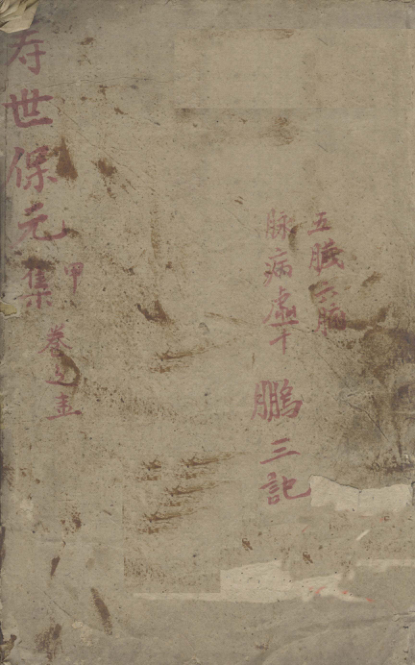 五臓六腑
脉病虚
鵬三記
寿世保元
甲集
卷之